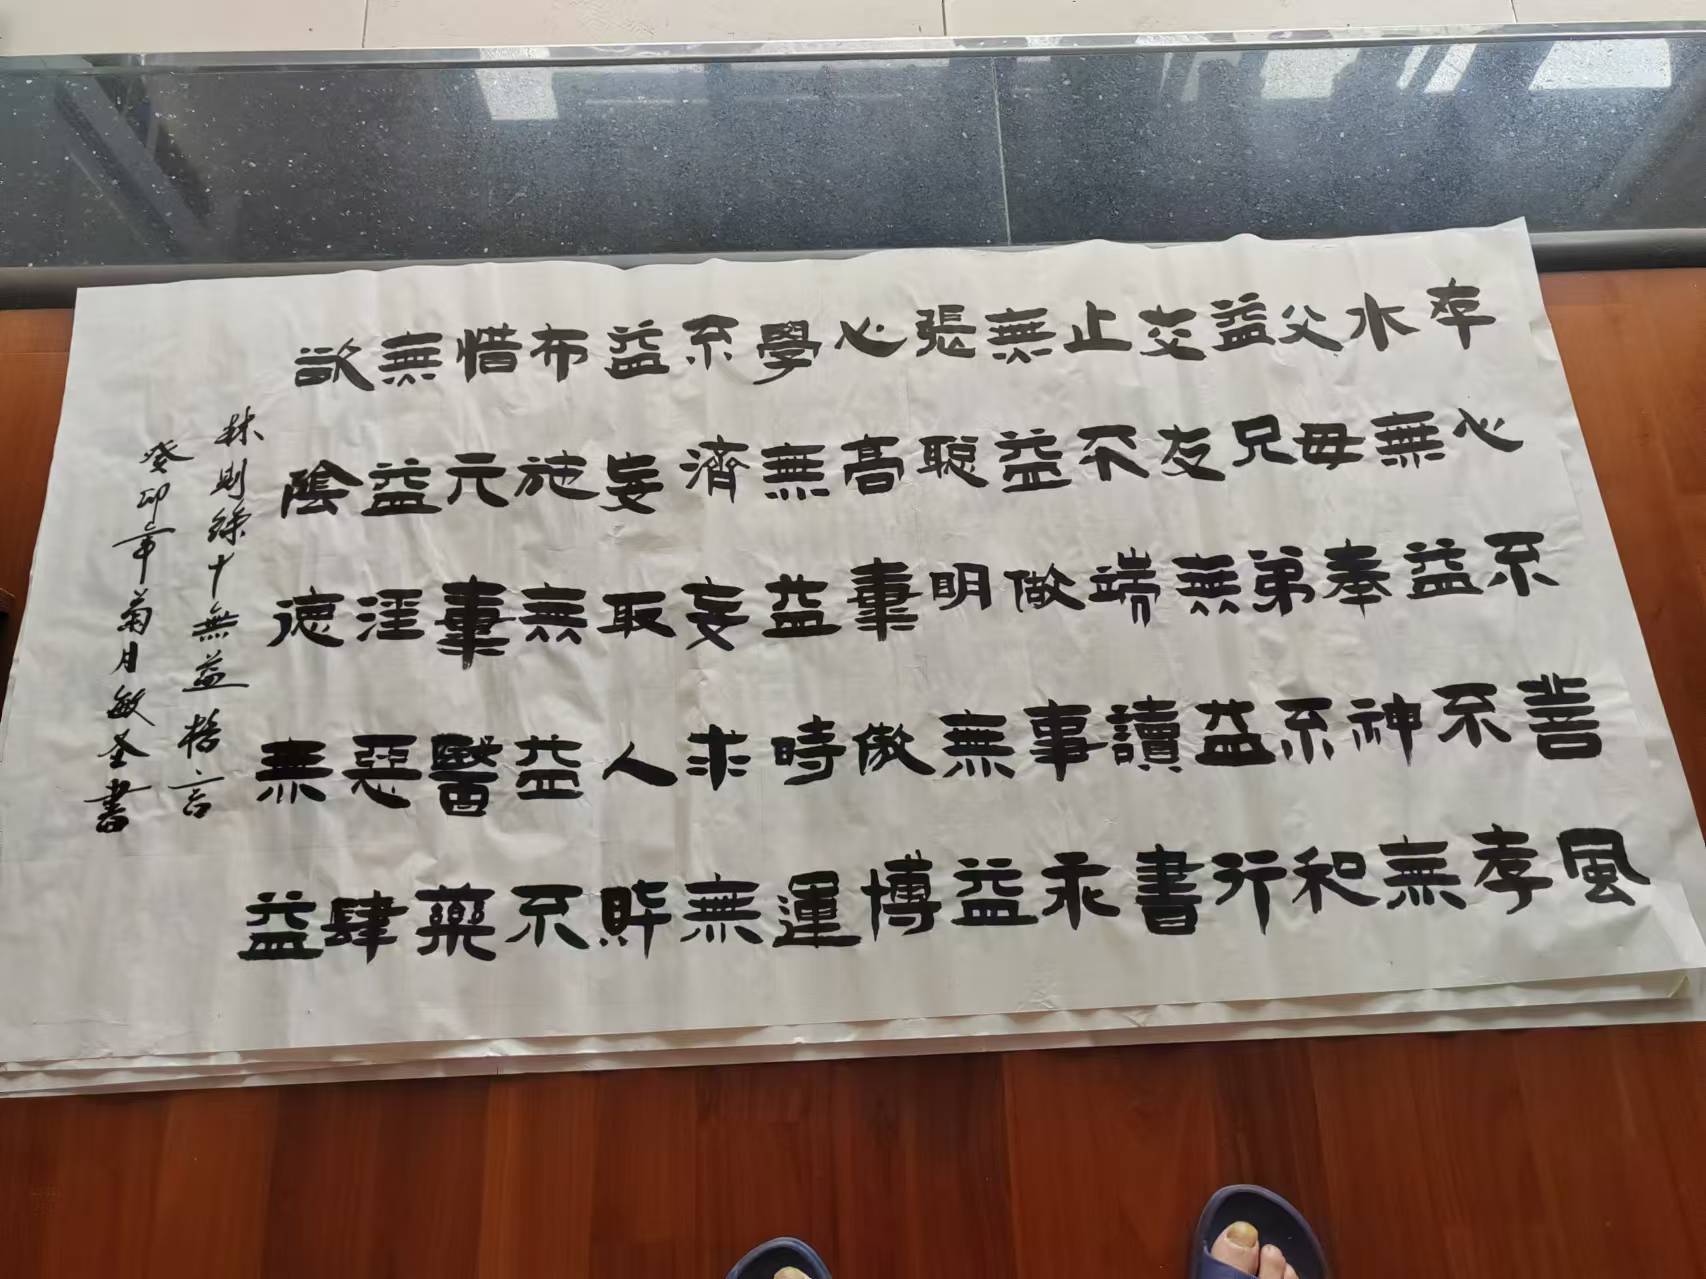 存心不善風
水無益不孝
父毋奉神無
益兄弟不和
交友無益行
止不端讀書
無益做事乖
張聰明無益
心高氣傲博
學無益時運
不濟妄求無
益妄取人財
布施無益不
惜元氣醫藥
無益淫惡肆
欲陰德無益
林則徐十無益格言
癸卯年菊月敏書